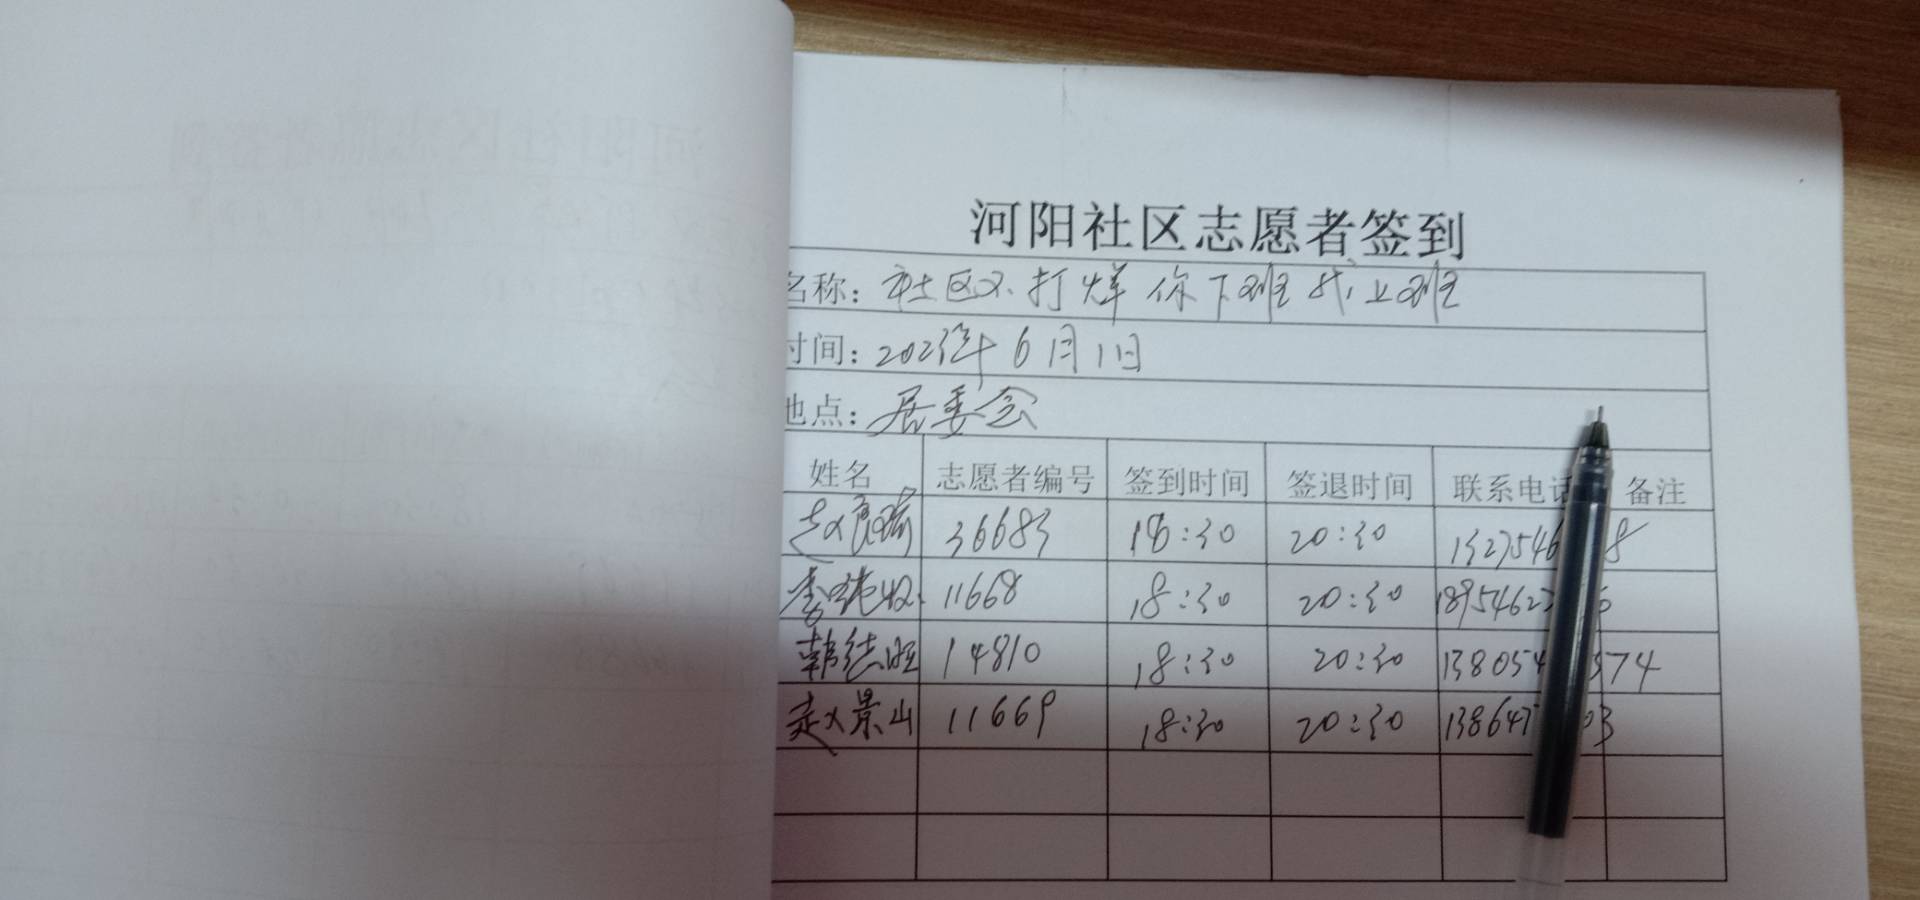 河阳社区志愿者签到
名称：社区不打烊 你下班我上班
时间：2023年6月1日
地点：居委会
姓名 志愿者编号 签到时间 签退时间 联系电话 备注
赵 36683 18:30 20:30 1327546 8
李 11668 18:30 20:30 1895462
韩 14810 18:30 20:30 138054 374
赵景山 11669 18:30 20:30 13864 03